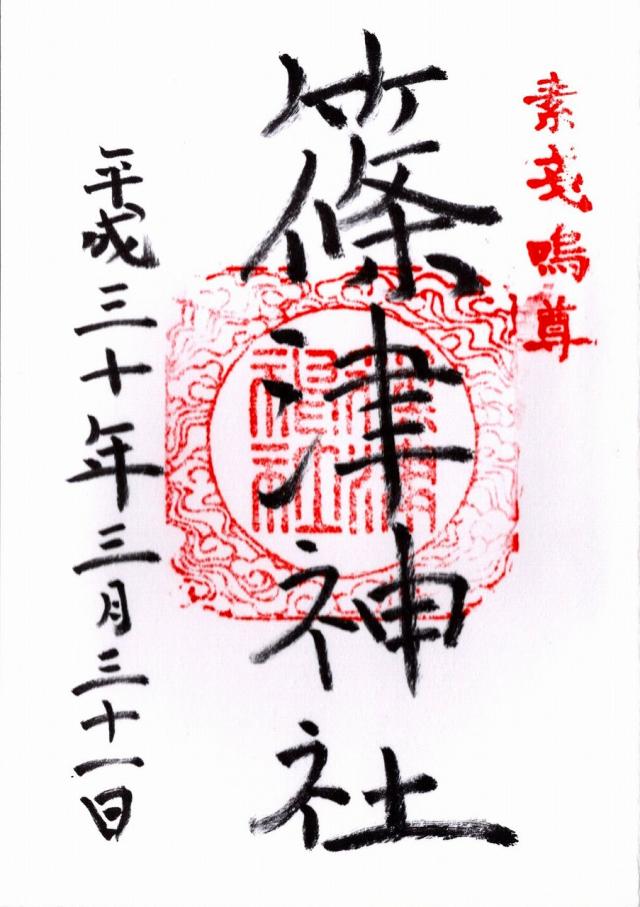 素戔嗚尊
篠津神社
平成三十年三月三十一日